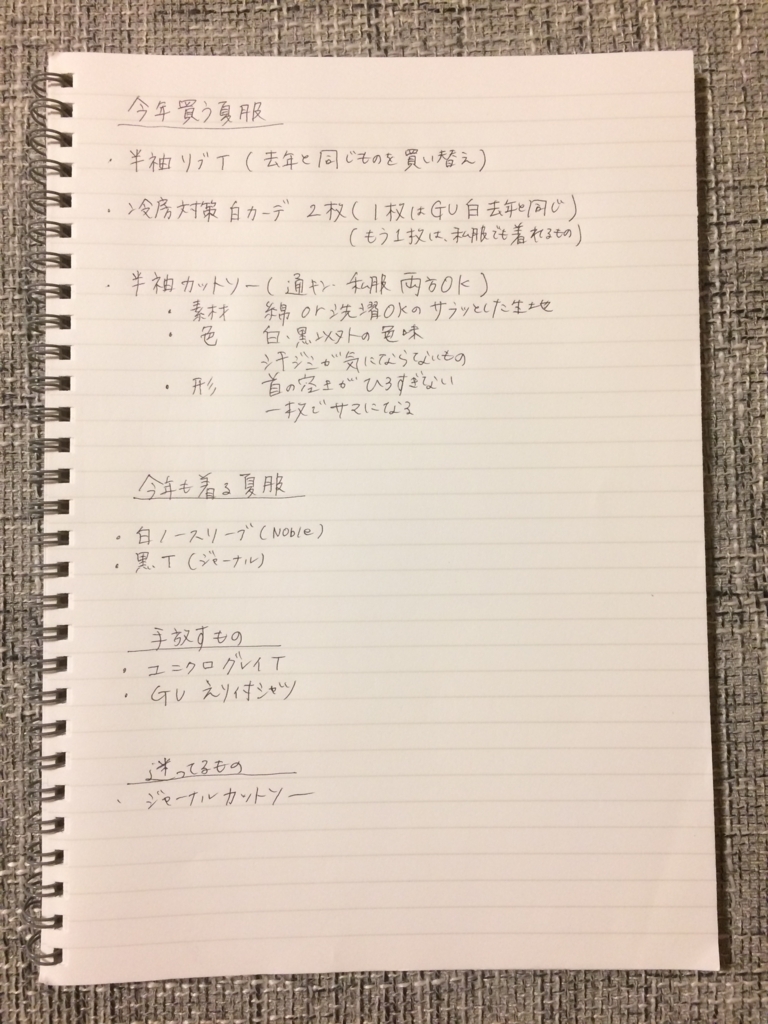 今年買う夏服
・半袖リブT(去年と同じものを買い替え)
・冷房対策白カーデ 2枚(1枚はGU白去年と同じ)
(もう1枚は、私服でも着れるもの)
・半袖カットソー(通キン・私服 両方OK)
・素材 綿or洗濯OKのサラッとした生地
・色 白・黒以外の色味
汗ジミが気にならないもの
・形 首の空きがひろすぎない
一枚でサマになる
今年も着る夏服
・白ノースリーブ(Noble)
・黒T(ジャーナル)
手放すもの
・ユニクログレイT
・GU えり付シャツ
迷ってるもの
・ジャーナルカットソー